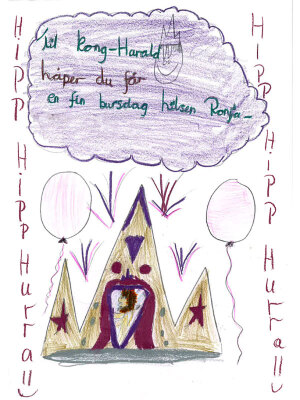 HIPP HIPP Hurra!!
Til Kong-Harald
håper du får
en fin bursdag hilsen Ronja
HIPP HIPP Hurra!!